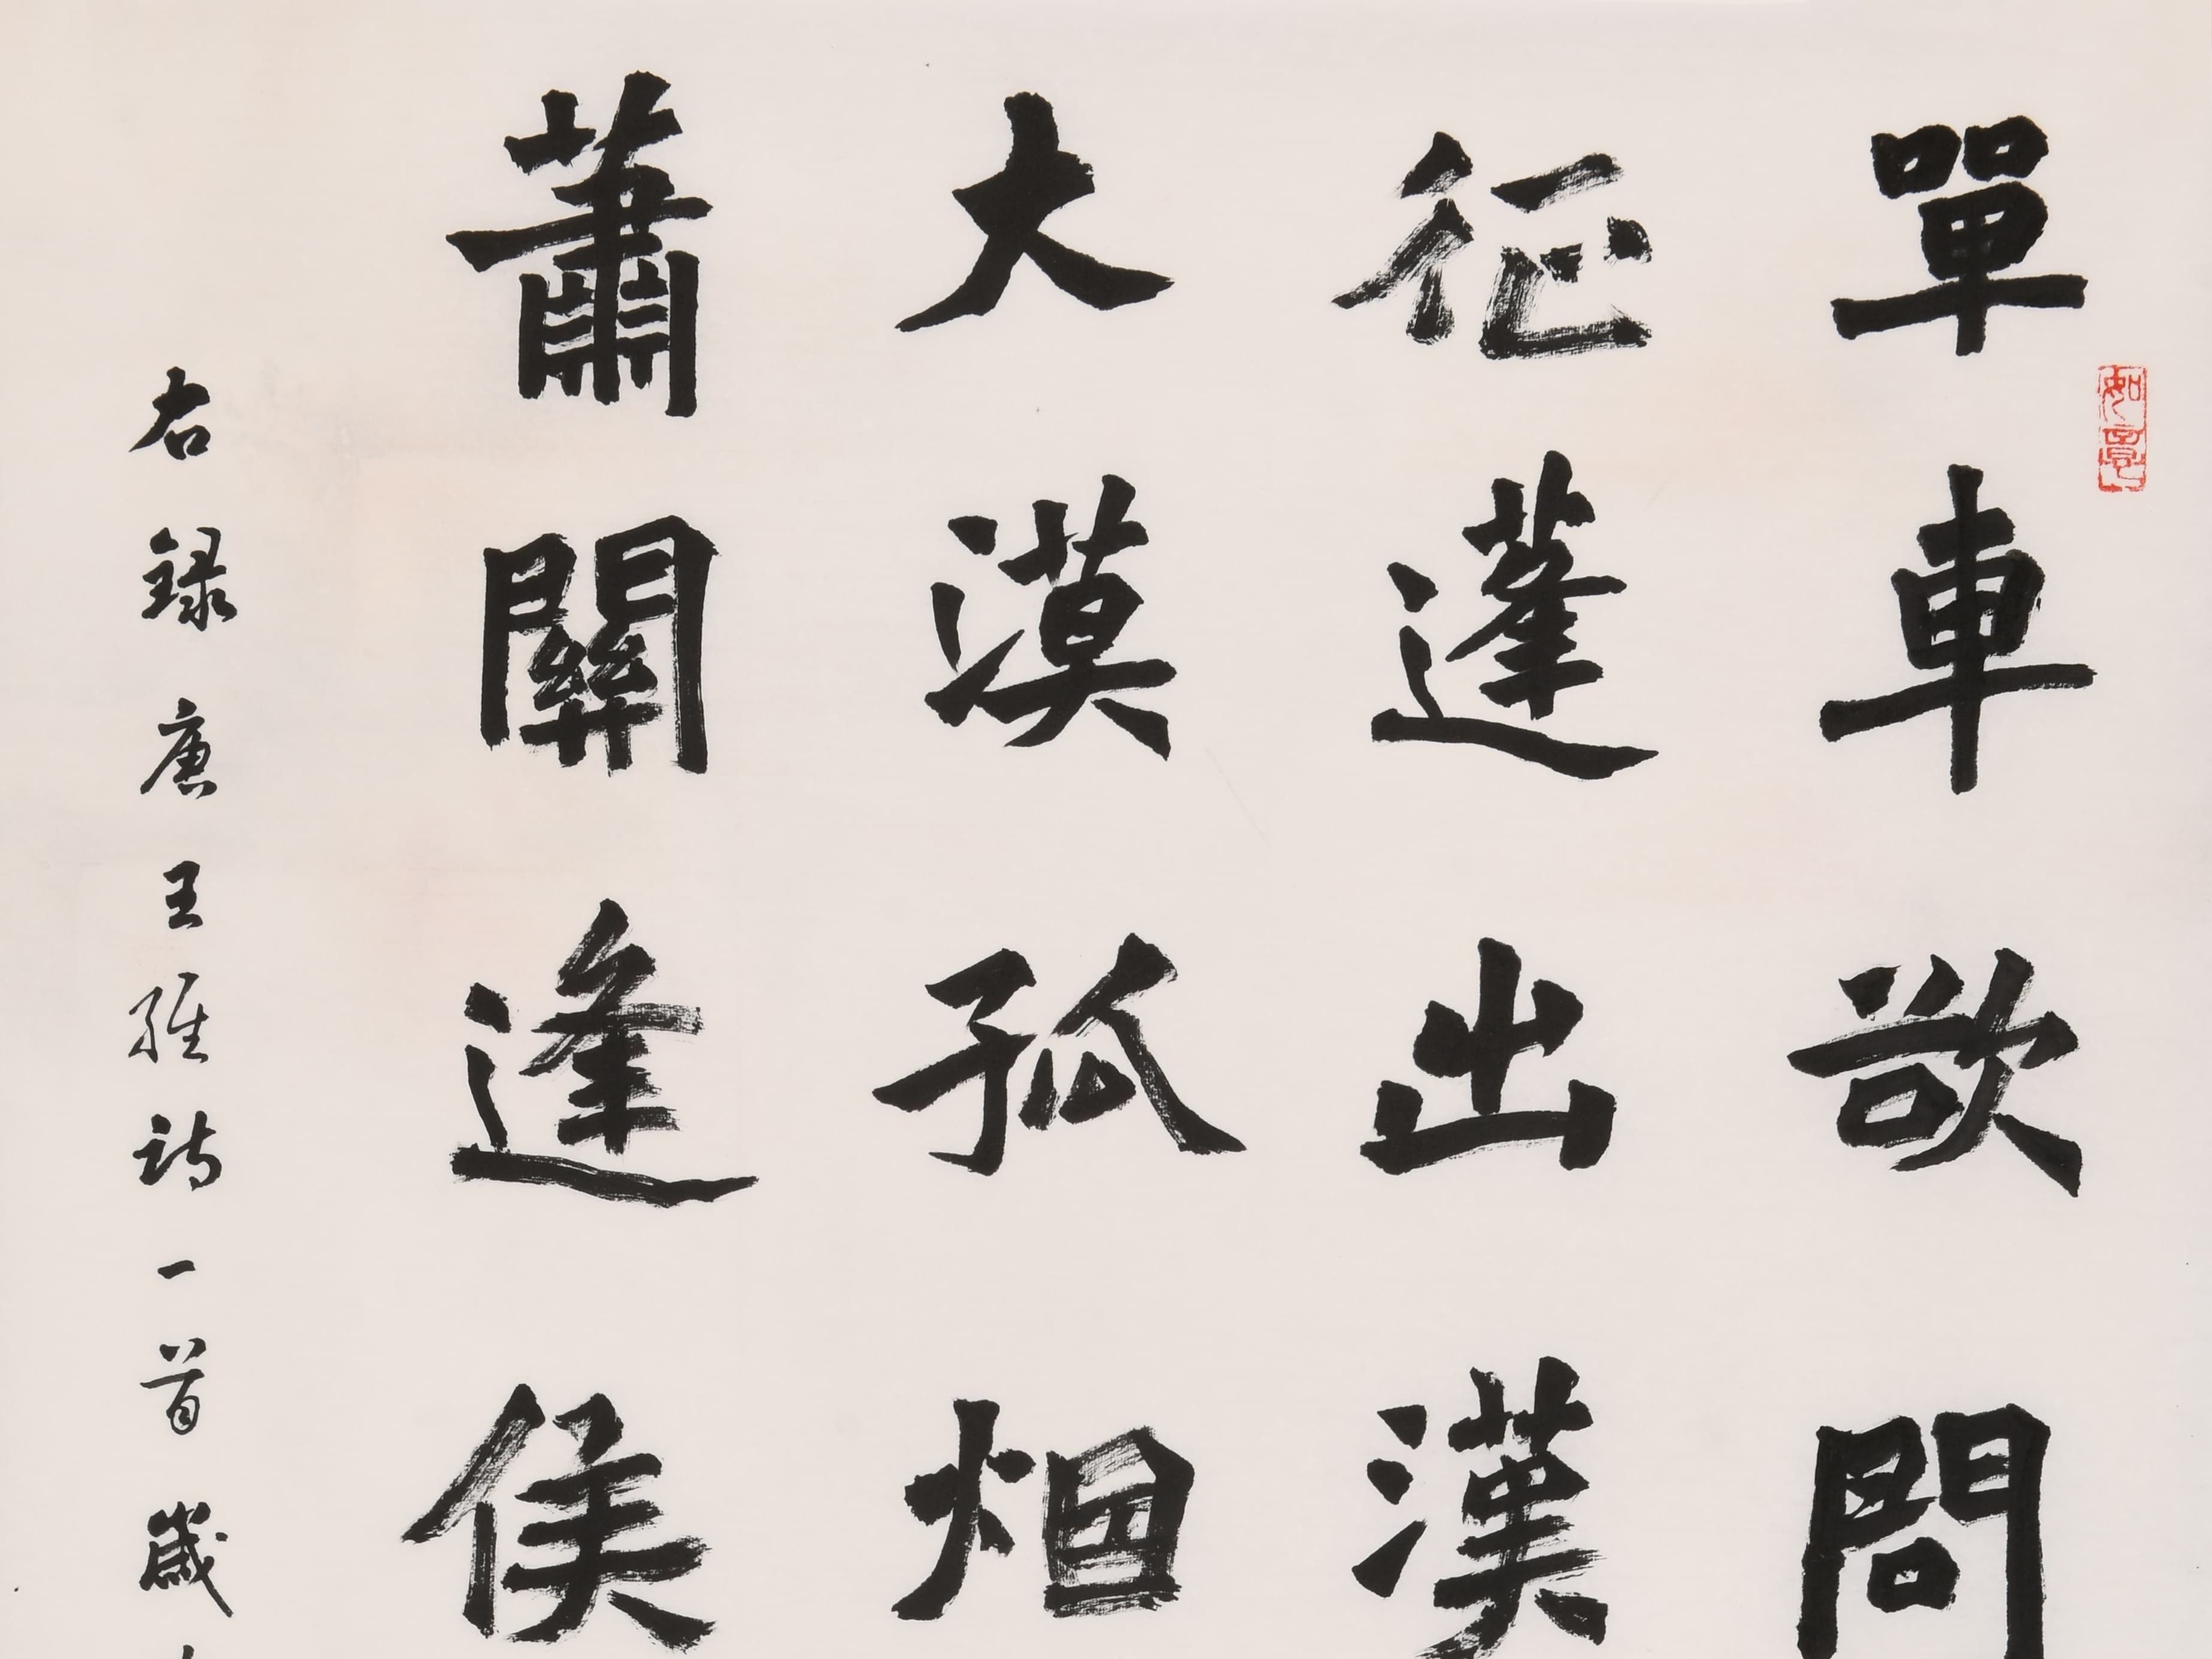 如意
單車欲問
征蓬出漢
大漠孤烟
蕭關逢侯
右録唐王維詩一首歲